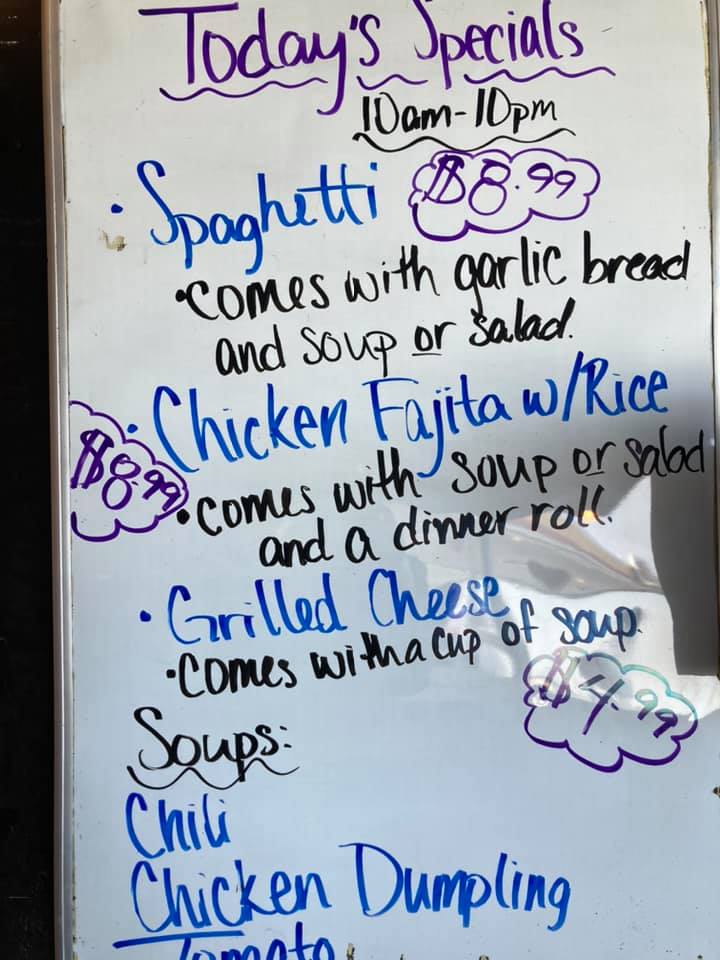 Today's Specials
10am-10pm
• Spaghetti $8.99
• comes with garlic bread
and soup or salad.
• Chicken Fajita w/Rice
$8.99
• comes with soup or salad
and a dinner roll.
• Grilled Cheese
• comes with a cup of soup.
$4.99
Soups:
Chili
Chicken Dumpling
Tomato